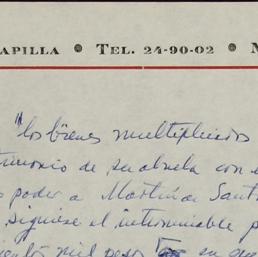 APILLA • TEL. 24-90-02 • M
"los bienes multiplicados
trimonio de su abuela con e
poder a Martín de Sant
siguiese el interminable p
cientos mil pesos en su que